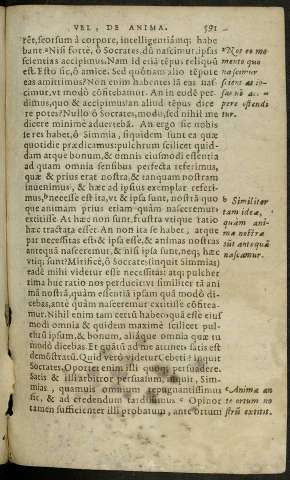 VEL, DE ANIMA. 591
rēt, seorsum à corpore, intelligentiámq; habe
bant. ᵃ Nisi fortè, ô Socrates, dū nascimur, ipsas
scientias accipimus. Nam id etiā tēpus reliquū
est. Esto sic, ô amice. Sed quónam alio tēpote
eas amittimus? Non enim habentes iā eas nas-
cimur, vt modò cōfitebamur. An in eodē per-
dimus, quo & accipimus? an aliud tēpus dice
re potes? Nullo ô Socrates, modo, sed nihil me
dicere minimè aduertebā. An ergo sic nobis
se res habet, ô Simmia, siquidem sunt ea quæ
quotidie prædicamus: pulchrum scilicet quid-
dam atque bonum, & omnis eiusmodi essentia
ad quam omnia sensibus perfecta referimus,
quæ & prius erat nostra, & tanquam nostram
inuenimus, & hæc ad ipsius exemplar referi-
mus, ᵇ necesse est ita, vt & ipsa sunt, nostrā quo
que animam prius etiam quàm nasceremur,
extitisse. At hæc non sunt, frustra vtique ratio
hæc tractata esset. An non ita se habet, atque
par necessitas est & ipsa esse, & animas nostras
antequā nasceremur, & nisi ipsa sunt, neq; hæc
vtiq; sunt? Mirificè, ô Socrates (inquit Simmias)
eadē mihi videtur esse necessitas: atq; pulcher
rima huc ratio nos perducit: vt similiter tā ani
mā nostrā, quàm essentiā ipsam quā modò di-
cebas, antè quàm nasceremur extitisse cōsitea-
mur. Nihil enim tam certū habeo, quā esse eius
modi omnia & quidem maximè scilicet pul-
chrū ipsum, & bonum, aliáque omnia quæ tu
modò dicebas. Et quātū ad me attinet, satis est
demōstratū. Quid verò videtur Cebeti? inquit
Socrates. Oportet enim illi quoq; persuadere.
Satis & illi arbitror persuasum, inquit, Sim-
mias, quamuis omnium repugnantissimus
sit, & ad credendum tardissimus. ᶜ Opinor
tamen sufficienter illi probatum, ante ortum
ᵃ Not eo mo-
mento quo
nascimur
scientias ip-
sas nō ac-
pere ostendi
tur.
b Similiter
tam ideæ,
quàm ani-
mæ nostræ
sūt antequā
nascamur.
ᶜ Animæ an
te ortum no
strū extitit.